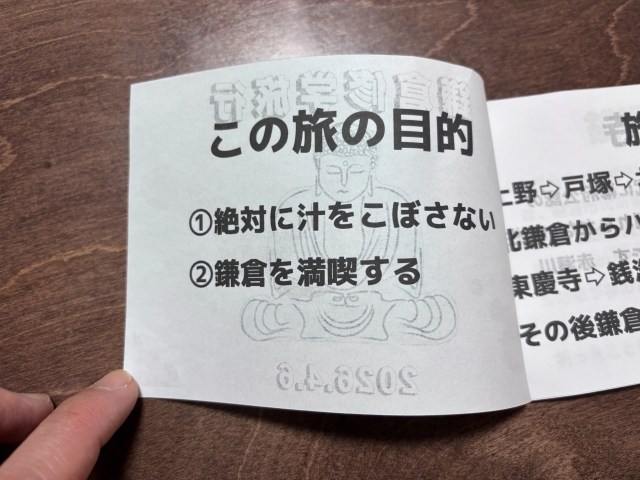 この旅の目的
①絶対に汁をこぼさない
②鎌倉を満喫する
鎌倉修学旅行
2026.4.6
旅
上野⇨戸塚⇨
北鎌倉から
東慶寺⇨銭
その後鎌倉